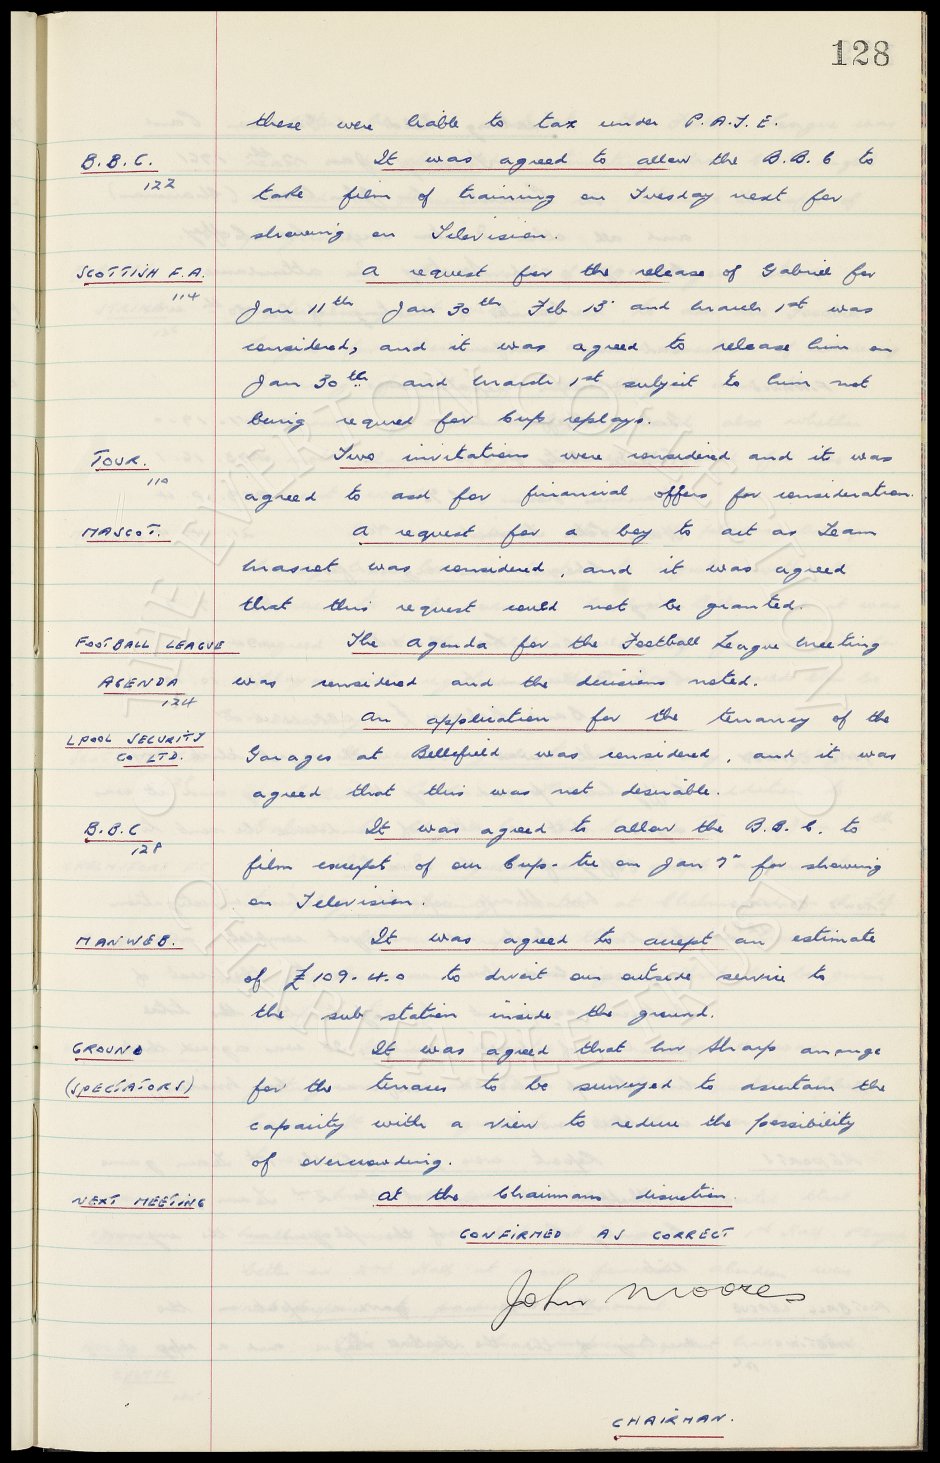 128
these were liable to tax under P.A.Y.E.
B.B.C. It was agreed to allow the B.B.C to
122
take film of training on Tuesday next for
showing on Television.
SCOTTISH F.A. A request for the release of Gabriel for
114
Jan 11th Jan 30th Feb 13 and March 1st was
considered, and it was agreed to release him on
Jan 30th and March 1st subject to him not
being required for Cup replays.
TOUR. Two invitations were considered and it was
110
agreed to ask for financial offers for consideration.
MASCOT. A request for a boy to act as Team
Mascot was considered, and it was agreed
that this request could not be granted.
FOOTBALL LEAGUE The Agenda for the Football League Meeting
AGENDA was considered and the decisions noted.
124
An application for the tenancy of the
LPOOL SECURITY
CO LTD. Garages at Bellefield was considered, and it was
agreed that this was not desirable.
B.B.C It was agreed to allow the B.B.C. to
128
film excerpt of our Cup-tie on Jan 7" for showing
on Television.
MANWEB. It was agreed to accept an estimate
of £109-4-0 to divert our outside service to
the sub station inside the ground.
GROUND It was agreed that Mr Sharp arrange
(SPECTATORS) for the terraces to be surveyed to ascertain the
capacity with a view to reduce the possibility
of overcrowding.
NEXT MEETING At the Chairmans discretion.
CONFIRMED AS CORRECT
John Moores
CHAIRMAN.